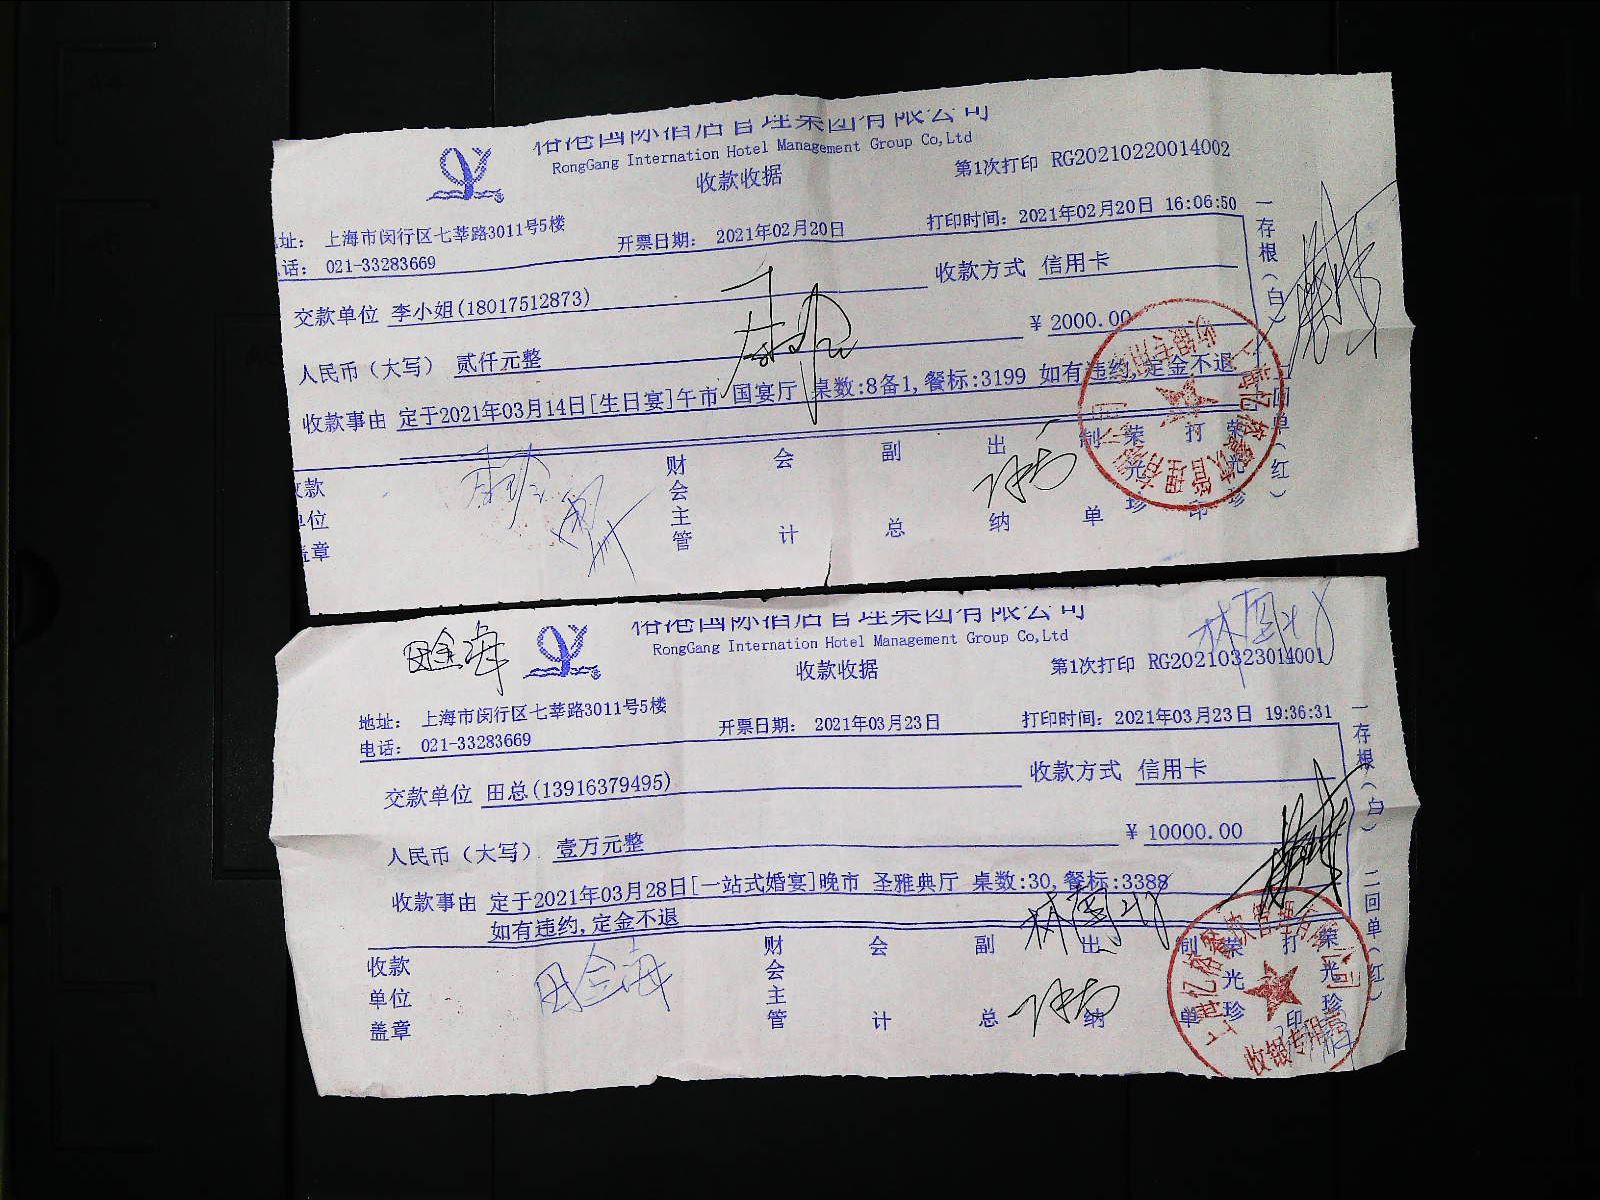 裕港国际酒店管理集团有限公司
RongGang Internation Hotel Management Group Co,Ltd
收款收据
第1次打印 RG20210220014002
地址： 上海市闵行区七莘路3011号5楼
开票日期： 2021年02月20日
打印时间：2021年02月20日 16:06:50
话： 021-33283669
交款单位 李小姐(18017512873)
收款方式 信用卡
人民币（大写） 贰仟元整
¥ 2000.00
收款事由 定于2021年03月14日[生日宴]午市 国宴厅 桌数:8备1,餐标:3199 如有违约,定金不退
一存根（白） 二回单（红）
收款单位盖章
财会主管
会计
副总
出纳
制单
荣光珍
打印
荣光珍
裕港国际酒店管理集团有限公司
RongGang Internation Hotel Management Group Co,Ltd
收款收据
第1次打印 RG20210323014001
田金海
地址： 上海市闵行区七莘路3011号5楼
开票日期： 2021年03月23日
打印时间：2021年03月23日 19:36:31
电话： 021-33283669
交款单位 田总(13916379495)
收款方式 信用卡
人民币（大写） 壹万元整
¥ 10000.00
收款事由 定于2021年03月28日[一站式婚宴]晚市 圣雅典厅 桌数:30,餐标:3388
如有违约,定金不退
一存根（白） 二回单（红）
收款单位盖章
田金海
财会主管
会计
副总
出纳
制单
荣光珍
打印
荣光珍
收银专用章